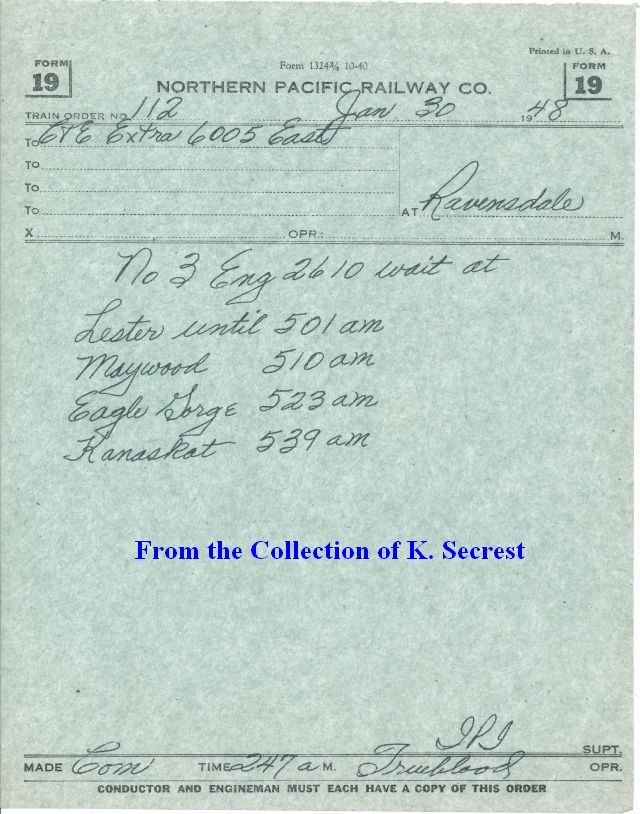 Printed in U. S. A.
FORM 19
Form 1324¾ 10-40
FORM 19
NORTHERN PACIFIC RAILWAY CO.
TRAIN ORDER NO. 112 Jan 30 1948
To C&E Extra 6005 East
To
To
To AT Ravensdale
X OPR.: M.
No 3 Eng 2610 wait at
Lester until 501 am
Maywood 510 am
Eagle Gorge 523 am
Kanaskat 539 am
From the Collection of K. Secrest
SUPT.
MADE Com TIME 247 a M. Trueblood OPR.
CONDUCTOR AND ENGINEMAN MUST EACH HAVE A COPY OF THIS ORDER